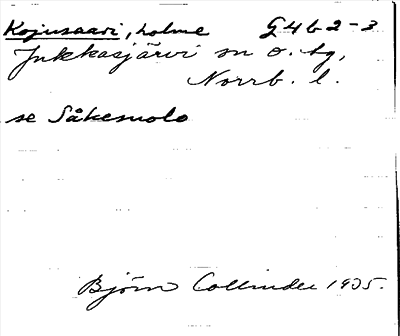 Kojusaari, holme G4b2-3
Jukkasjärvi sn o. tg,
Norrb. l.
se Såkesuolo
Björn Collinder 1935.